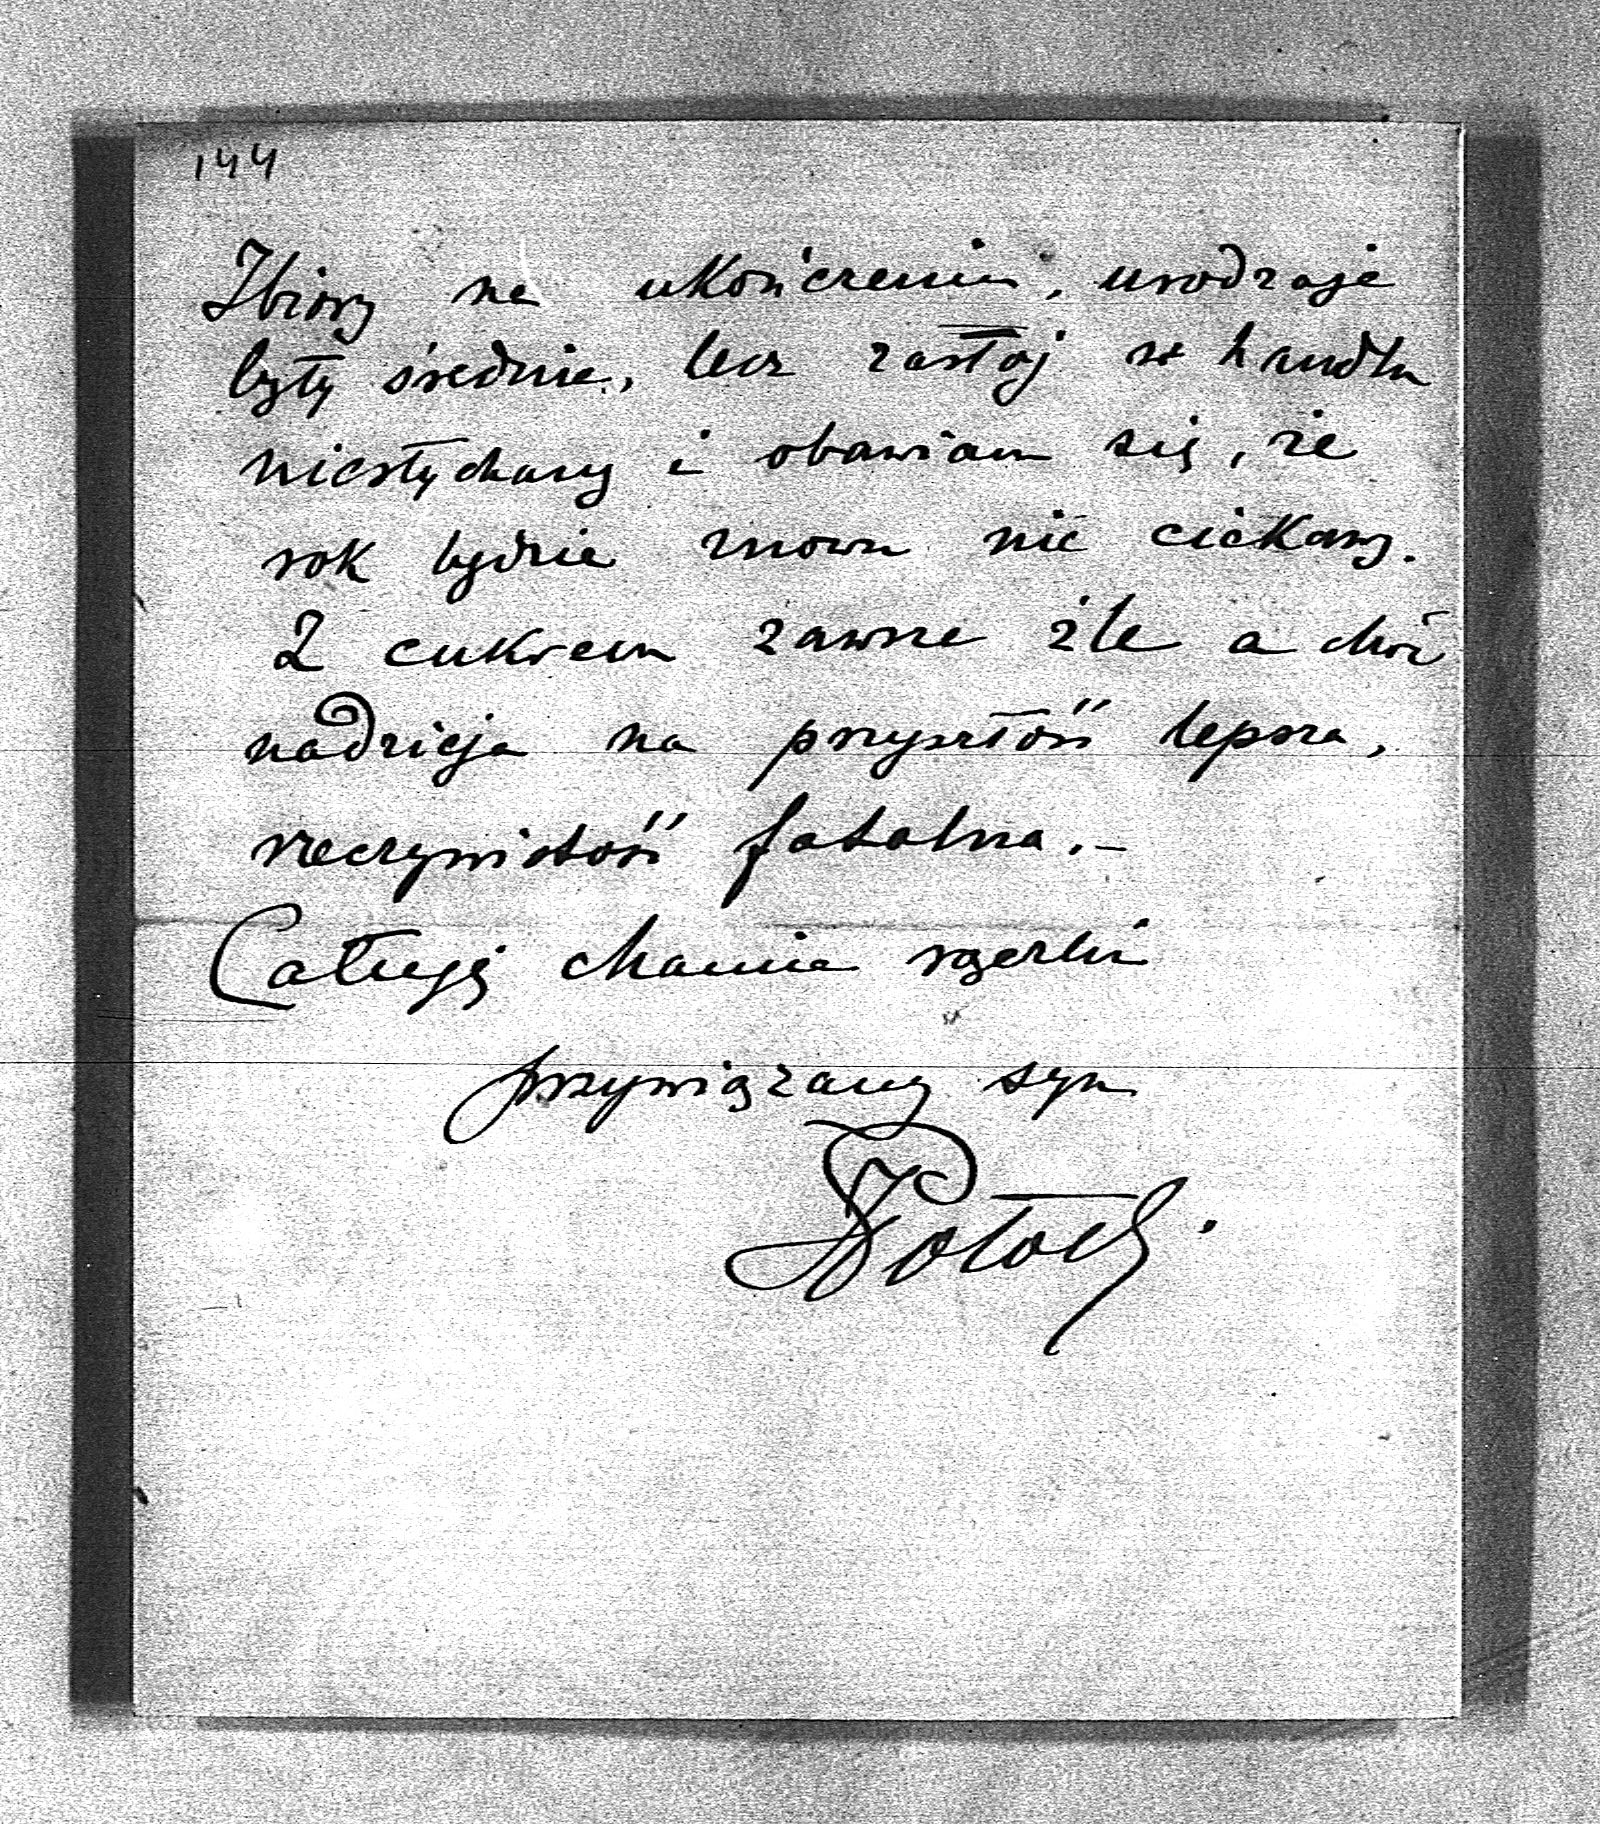 144
Zbiory na ukończeniu, urodzaje
były średnie, lecz zastój w handlu
niesłychany i obawiam się, że
rok będzie znowu nie ciekawy.
Z cukrem zawsze źle a choć
nadzieja na przyszłość lepsza,
rzeczywistość fatalna. –
Całuję rączki
przywiązany syn
Potocki.